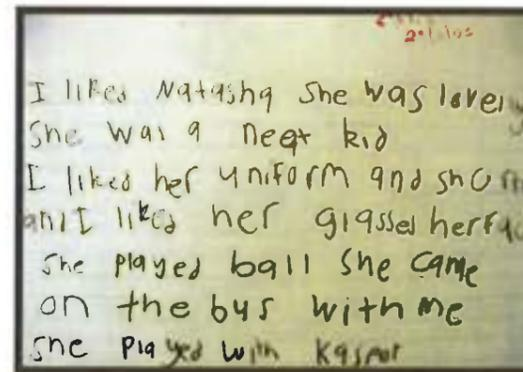 I liked Natasha She was lovely
She was a neat kid
I liked her uniform and
and I liked her glasses her
She played ball She came
on the bus with me
She played with